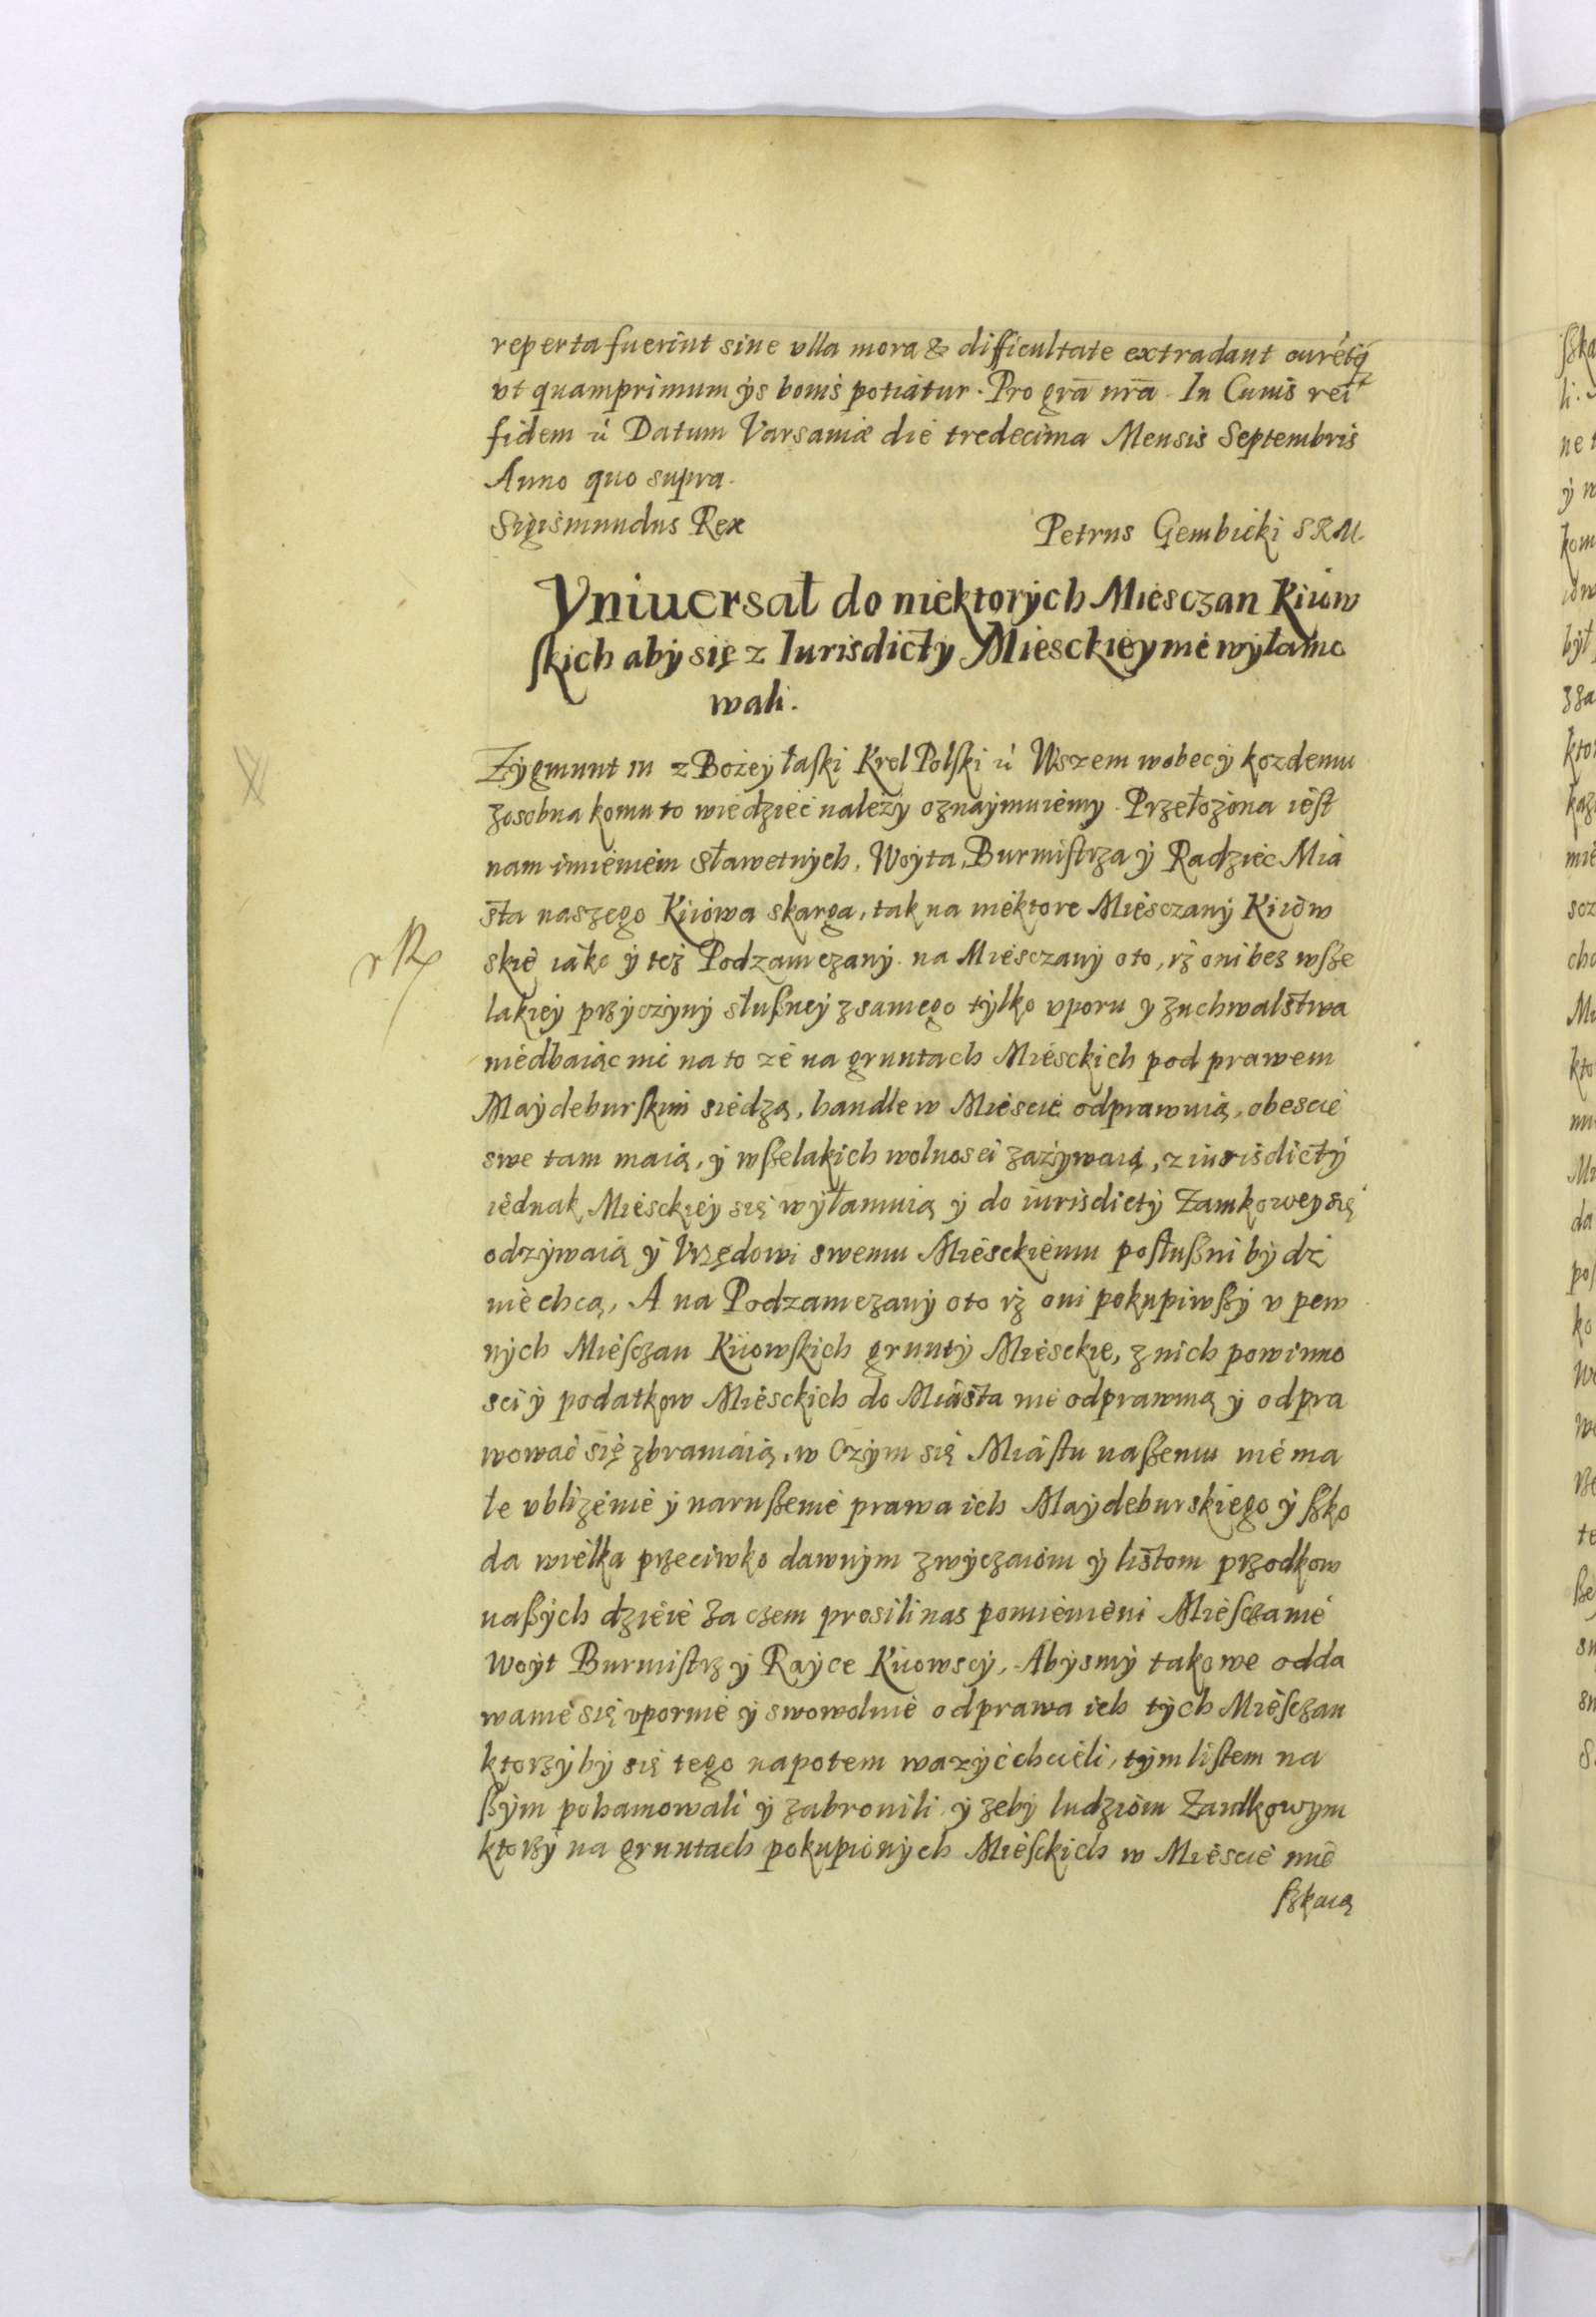 reperta fuerint sine vlla mora & difficultate extradant curētq̃
vt quamprimum ijs bonis potiatur. Pro grã nrã. In Cuius rei
fidem ć Datum Varsaviæ die tredecima Mensis Septembris
Anno quo supra.
Sigismundus Rex
Petrus Gembicki SRM.
Vniuersał do niektorych Miesczan Kiiow
skich aby się z Iurisdicty Miesckiey nie wyłamo
wali.
Zygmunt III z Bożey łaski Krol Polski ć Wszem wobec y kozdemu
zosobna komu to wiedzieć należy oznaymuiemy. Przełożona iest
nam imieniem sławetnych, Woyta, Burmistrza y Radziec Mia
sta naszego Kiiowa skarga, tak na niektore Miesczany Kiiow
skie iako y też Podzamczany. na Miesczany oto, iż oni bez wsze
lakiey przyczyny słuszney z samego tylko vporu y zuchwalstwa
niedbaiąc nic na to ze na gruntach Miesckich pod prawem
Maydeburskim siedzą, handle w Miescie odprawuią, obescie
swe tam maią, y wszelakich wolnosci zażywaią, z iurisdicty
iednak Miesckiey się wyłamuią y do iurisdicty Zamkowey się
odzywaią y Vrzędowi swemu Miesckiemu posłuszni bydź
nie chcą, A na Podzamczany oto iż oni pokupiwszy v pew
nych Miesczan Kiiowskich grunty Miesckie, z nich powinno
sci y podatkow Miesckich do Miasta nie odprawuią y odpra
wować się zbraniaią, w Czym się Miastu naszemu nie ma
łe vbliżenie y naruszenie prawa ich Maydeburskiego y szko
da wielka przeciwko dawnym zwyczaiom y listom przodkow
naszych dzieie Za czem prosili nas pomienieni Miesczanie
Woyt Burmistrz y Rayce Kiiowscy, Abysmy takowe odda
wanie się vpornie y swowolnie od prawa ich tych Miesczan
ktorzyby się tego napotem ważyć chcieli, tym listem na
szym pohamowali y zabronili y żeby ludziom Zamkowym
ktorzy na gruntach pokupionych Miesckich w Miescie mie
szkaią